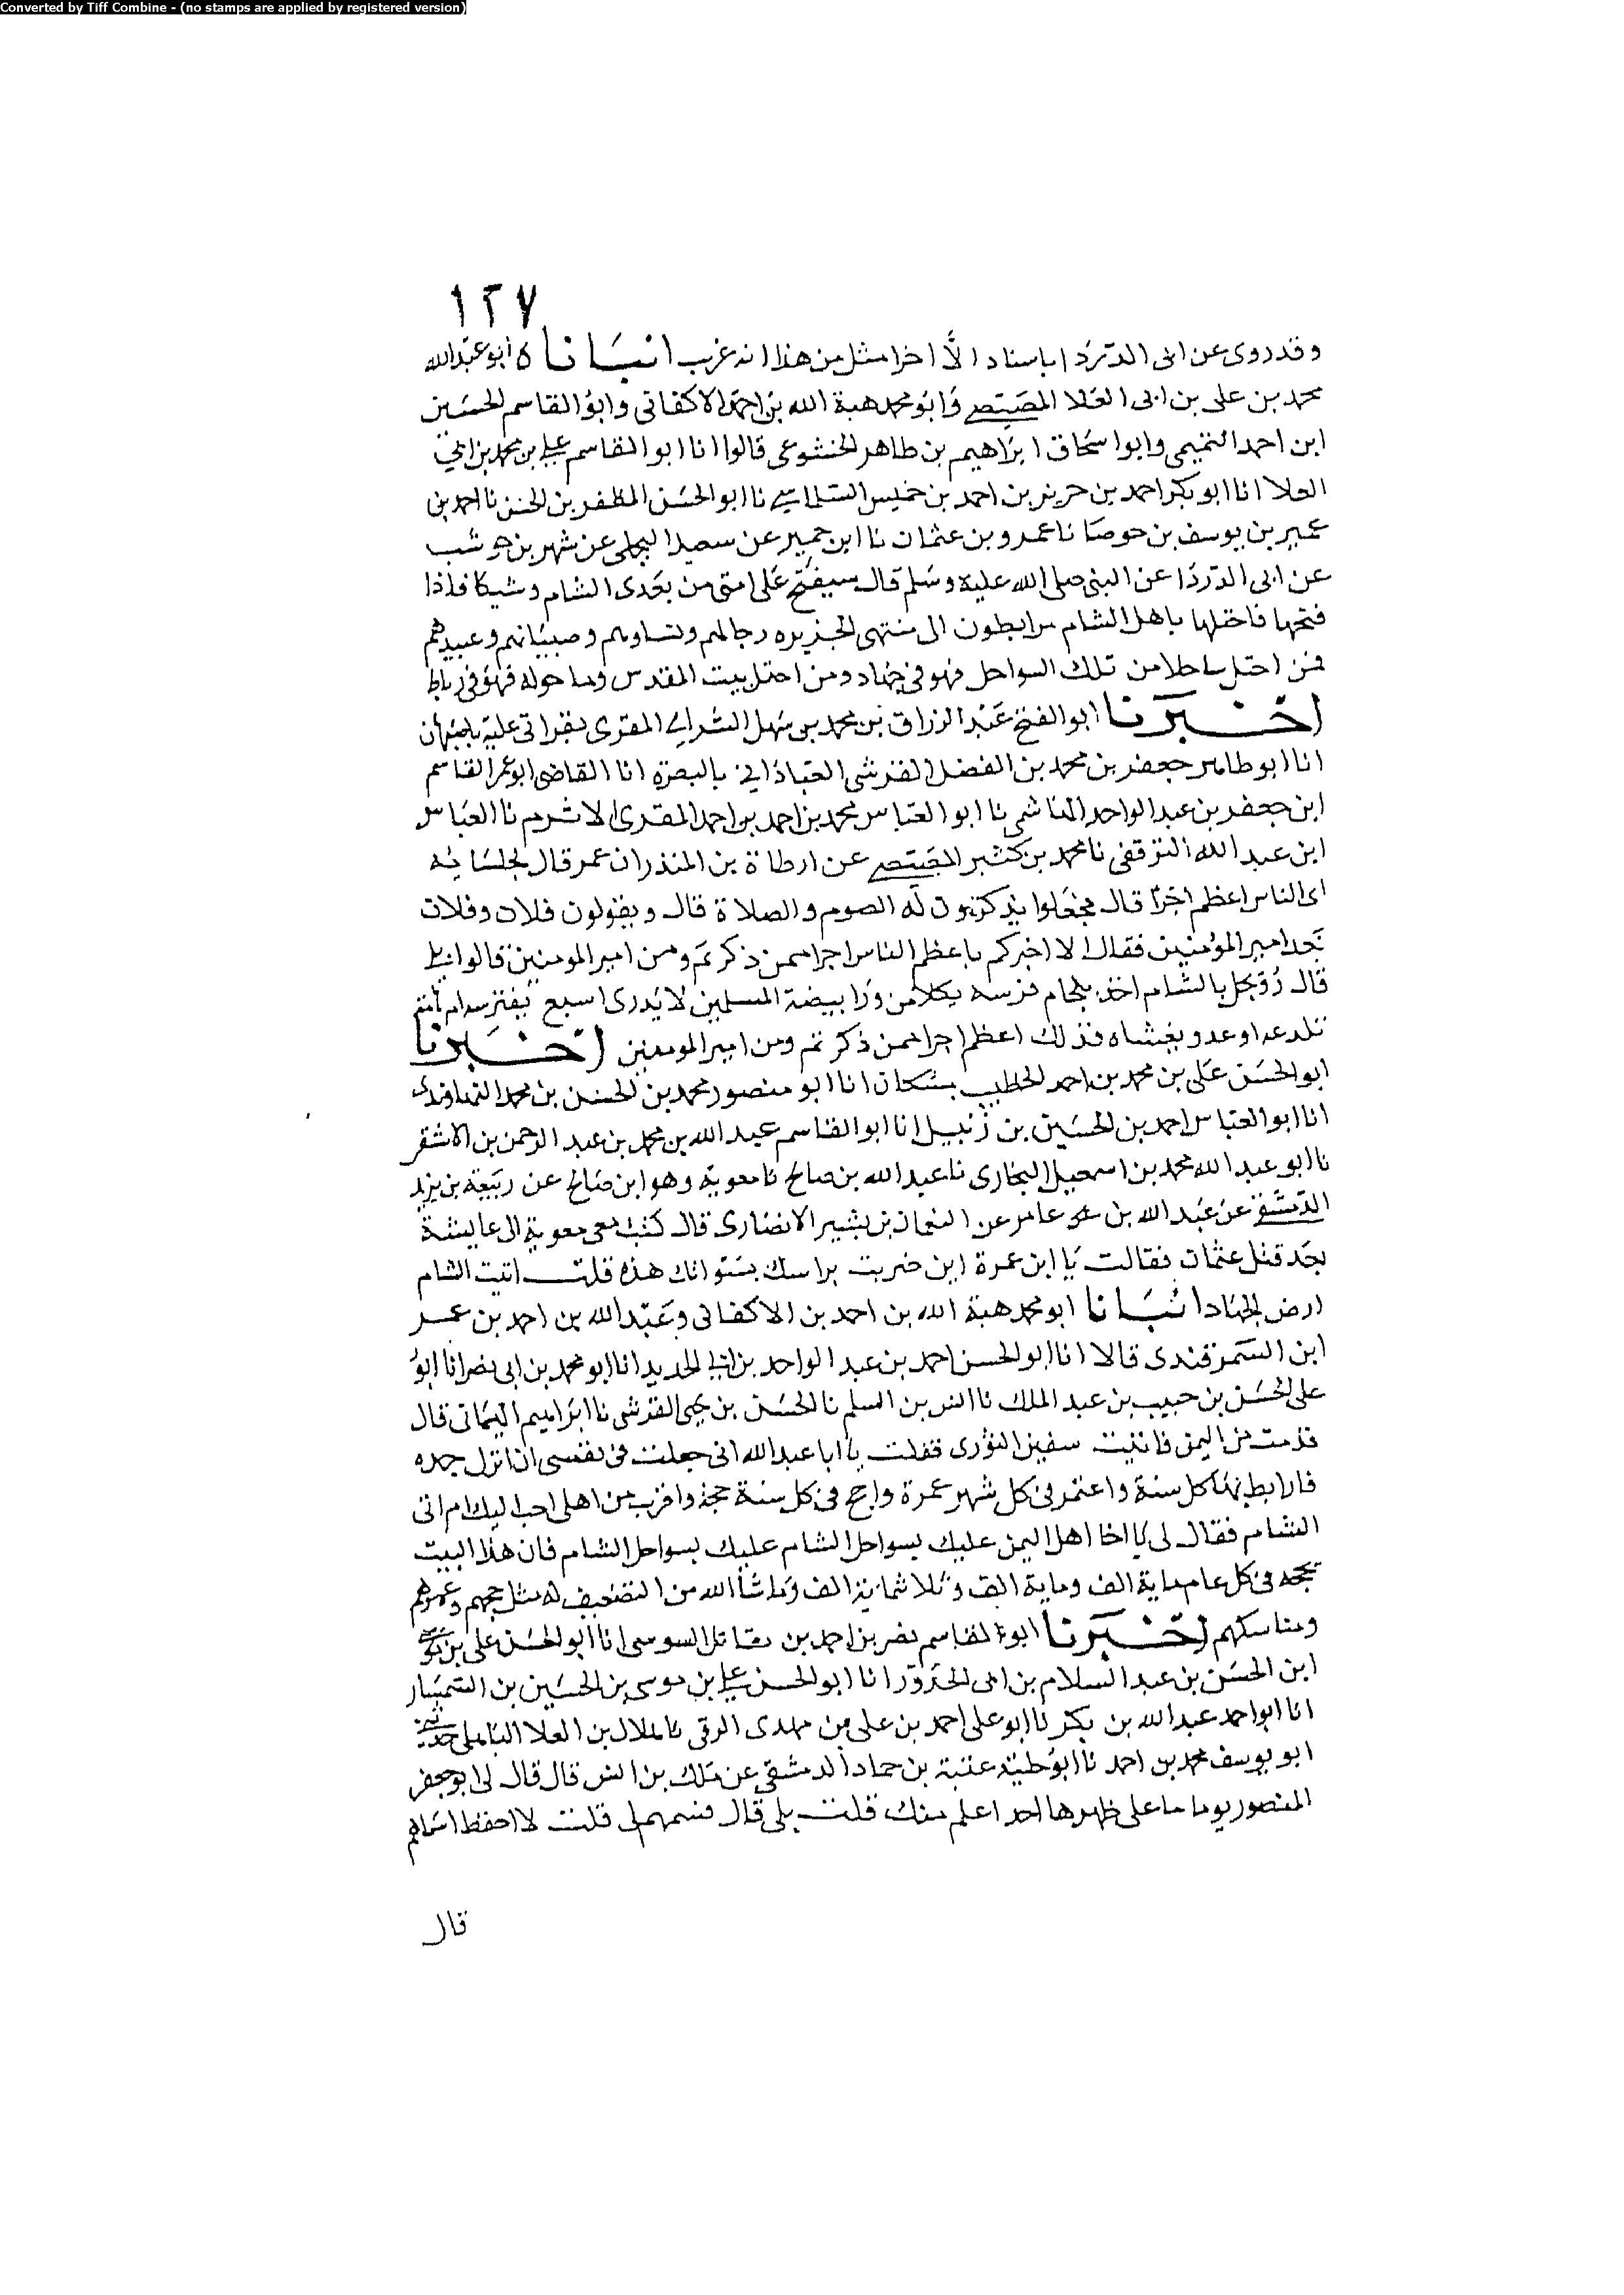 Converted by Tiff Combine - (no stamps are applied by registered version)
١٢٧
وقد روى عن ابى الدرداء باسناد الا اخر امثل من هذا انه غرب انبانا ه ابو عبد الله
محمد بن على بن ابى العلا المصيصي وابو محمد هبة الله بن احمد الاكفانى وابو القاسم الحسين
ابن احمد التميمى وابو اسحاق ابراهيم بن طاهر الخشوعى قالوا انا ابو القاسم على بن محمد بن ابي
العلا انا ابو بكر احمد بن حريز بن احمد بن خميس السلماسي نا ابو الحسن المظفر بن الحسن نا احمد بن
عمير بن يوسف بن حوصا نا عمرو بن عثمان نا ابن حمير عن سعيد البجلى عن شهر بن حوشب
عن ابى الدردا عن النبى صلى الله عليه وسلم قال سيفتح على امتى من بعدى الشام وشيكا فاذا
فتحها فاحتلها باهل الشام مرابطون الى منتهى الجزيره رجالهم ونساوهم وصبيانهم وعبيدهم
فمن احتل ساحلا من تلك السواحل فهو فى جهاد ومن احتل بيت المقدس وما حوله فهو فى رباط
اخبرنا ابو الفتح عبد الرزاق بن محمد بن سهل الشرابي المقرى بقراتى عليه باصبهان
انا ابو طاهر جعفر بن محمد بن الفضل القرشى العباداني بالبصرة انا القاضى ابو عمر القاسم
ابن جعفر بن عبد الواحد الهاشمى نا ابو العباس محمد بن احمد بن احمد المقرى الاثرم نا العباس
ابن عبد الله الترقفى نا محمد بن كثير المصيصي عن ارطاة بن المنذر ان عمر قال لجلسائه
اى الناس اعظم اجرا قال فجعلوا يذكرون له الصوم والصلاة قال ويقولون فلان وفلان
بعد امير المؤمنين فقال الا اخبركم باعظم الناس اجرا ممن ذكرتم ومن امير المومنين قالوا بلى
قال رويجل بالشام اخذ بلجام فرسه يكلا من ورا بيضة المسلمين لا يدرى اسبع يفترسه ام هامة
تلدغه او عدو يغشاه فذلك اعظم اجرا ممن ذكرتم ومن امير المومنين اخبرنا
ابو الحسن على بن محمد بن احمد الخطيب بمشكان انا ابو منصور محمد بن الحسن بن محمد النهاوندى
انا ابو العباس احمد بن الحسين بن زنبيل انا ابو القاسم عبد الله بن محمد بن عبد الرحمن بن الاشقر
نا ابو عبد الله محمد بن اسمعيل البخارى نا عبد الله بن صالح نا معوية وهو ابن صالح عن ربيعة بن يزيد
الدمشقي عن عبد الله بن عامر عن النعمان بن بشير الانصارى قال كتب معى معوية الى عايشة
بعد قتل عثمان فقالت يا ابن عمرة اين ضربت براسك بستوانك هذه قلت اتيت الشام
ارض الجهاد انبانا ابو محمد هبة الله بن احمد بن الاكفانى وعبد الله بن احمد بن عمر
ابن السمرقندى قالا انا ابو الحسن احمد بن عبد الواحد بن ابي الحديد انا ابو محمد بن ابى نصر انا ابو
على الحسن بن حبيب بن عبد الملك نا انس بن السلم نا الحسن بن يحيى القرشى نا ابراهيم اليمانى قال
قدمت من اليمن فاتيت سفين الثورى فقلت يا ابا عبد الله انى جعلت فى نفسى ان انزل جده
فارابط بها كل سنة واعتمر فى كل شهر عمرة واحج فى كل سنة حجة واقرب من اهلى احب اليك ام اتى
الشام فقال لى يا اخا اهل اليمن عليك بسواحل الشام عليك بسواحل الشام فان هذا البيت
يحجه فى كل عام ماية الف وماية الف وثلاثماية الف وما شا الله من التضعيف له مثل حجهم وعمرهم
ومناسكهم اخبرنا ابو القاسم نصر بن احمد بن مقاتل السوسى انا ابو الحسن على بن
ابن الحسن بن عبد السلام بن ابى الحزور انا ابو الحسن على بن موسى بن الحسين بن السمسار
انا ابو احمد عبد الله بن بكر نا ابو على احمد بن على بن مهدى الرقى نا هلال بن العلا الباهلى حدثني
ابو يوسف محمد بن احمد نا ابو خليد عتبة بن حماد الدمشقى عن ملك بن انس قال قال لى ابو جعفر
المنصور يوما ما على ظهرها احد اعلم منك قلت بلى قال فسمهم لى قلت لا احفظ اسماهم
قال